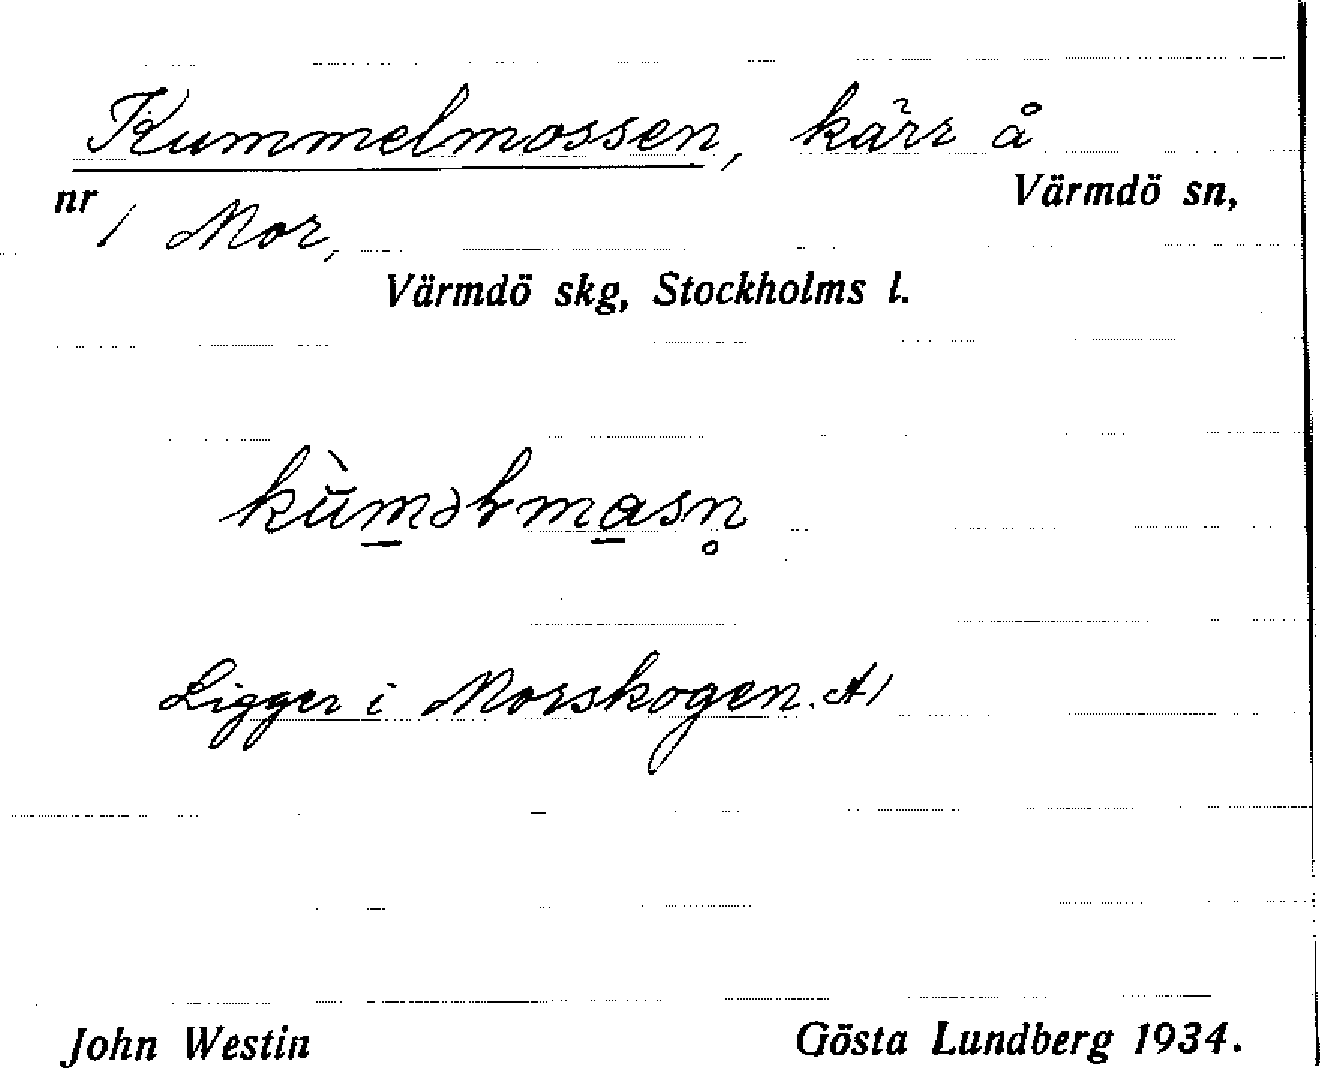 Kummelmossen, kärr å
Värmdö sn,
nr 1 Mor,
Värmdö skg, Stockholms l.
kùməlmasn̥
Ligger i Morskogen. A1
John Westin Gösta Lundberg 1934.